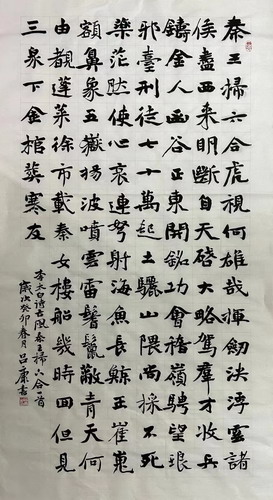 秦王掃六合虎視何雄哉揮劍決浮雲諸
侯盡西來明斷自天啓大略駕群才收兵
鑄金人函谷正東開銘功會稽嶺騁望琅
邪臺刑徒七十萬起土驪山隈尚採不死
藥茫然使心哀連弩射海魚長鯨正崔嵬
額鼻象五嶽揚波噴雲雷鬐鬣蔽青天何
由覩蓬萊徐市載秦女樓船幾時回但見
三泉下金棺葬寒灰
李太白詩古風秦王掃六合一首
歲次癸卯春月呂康書